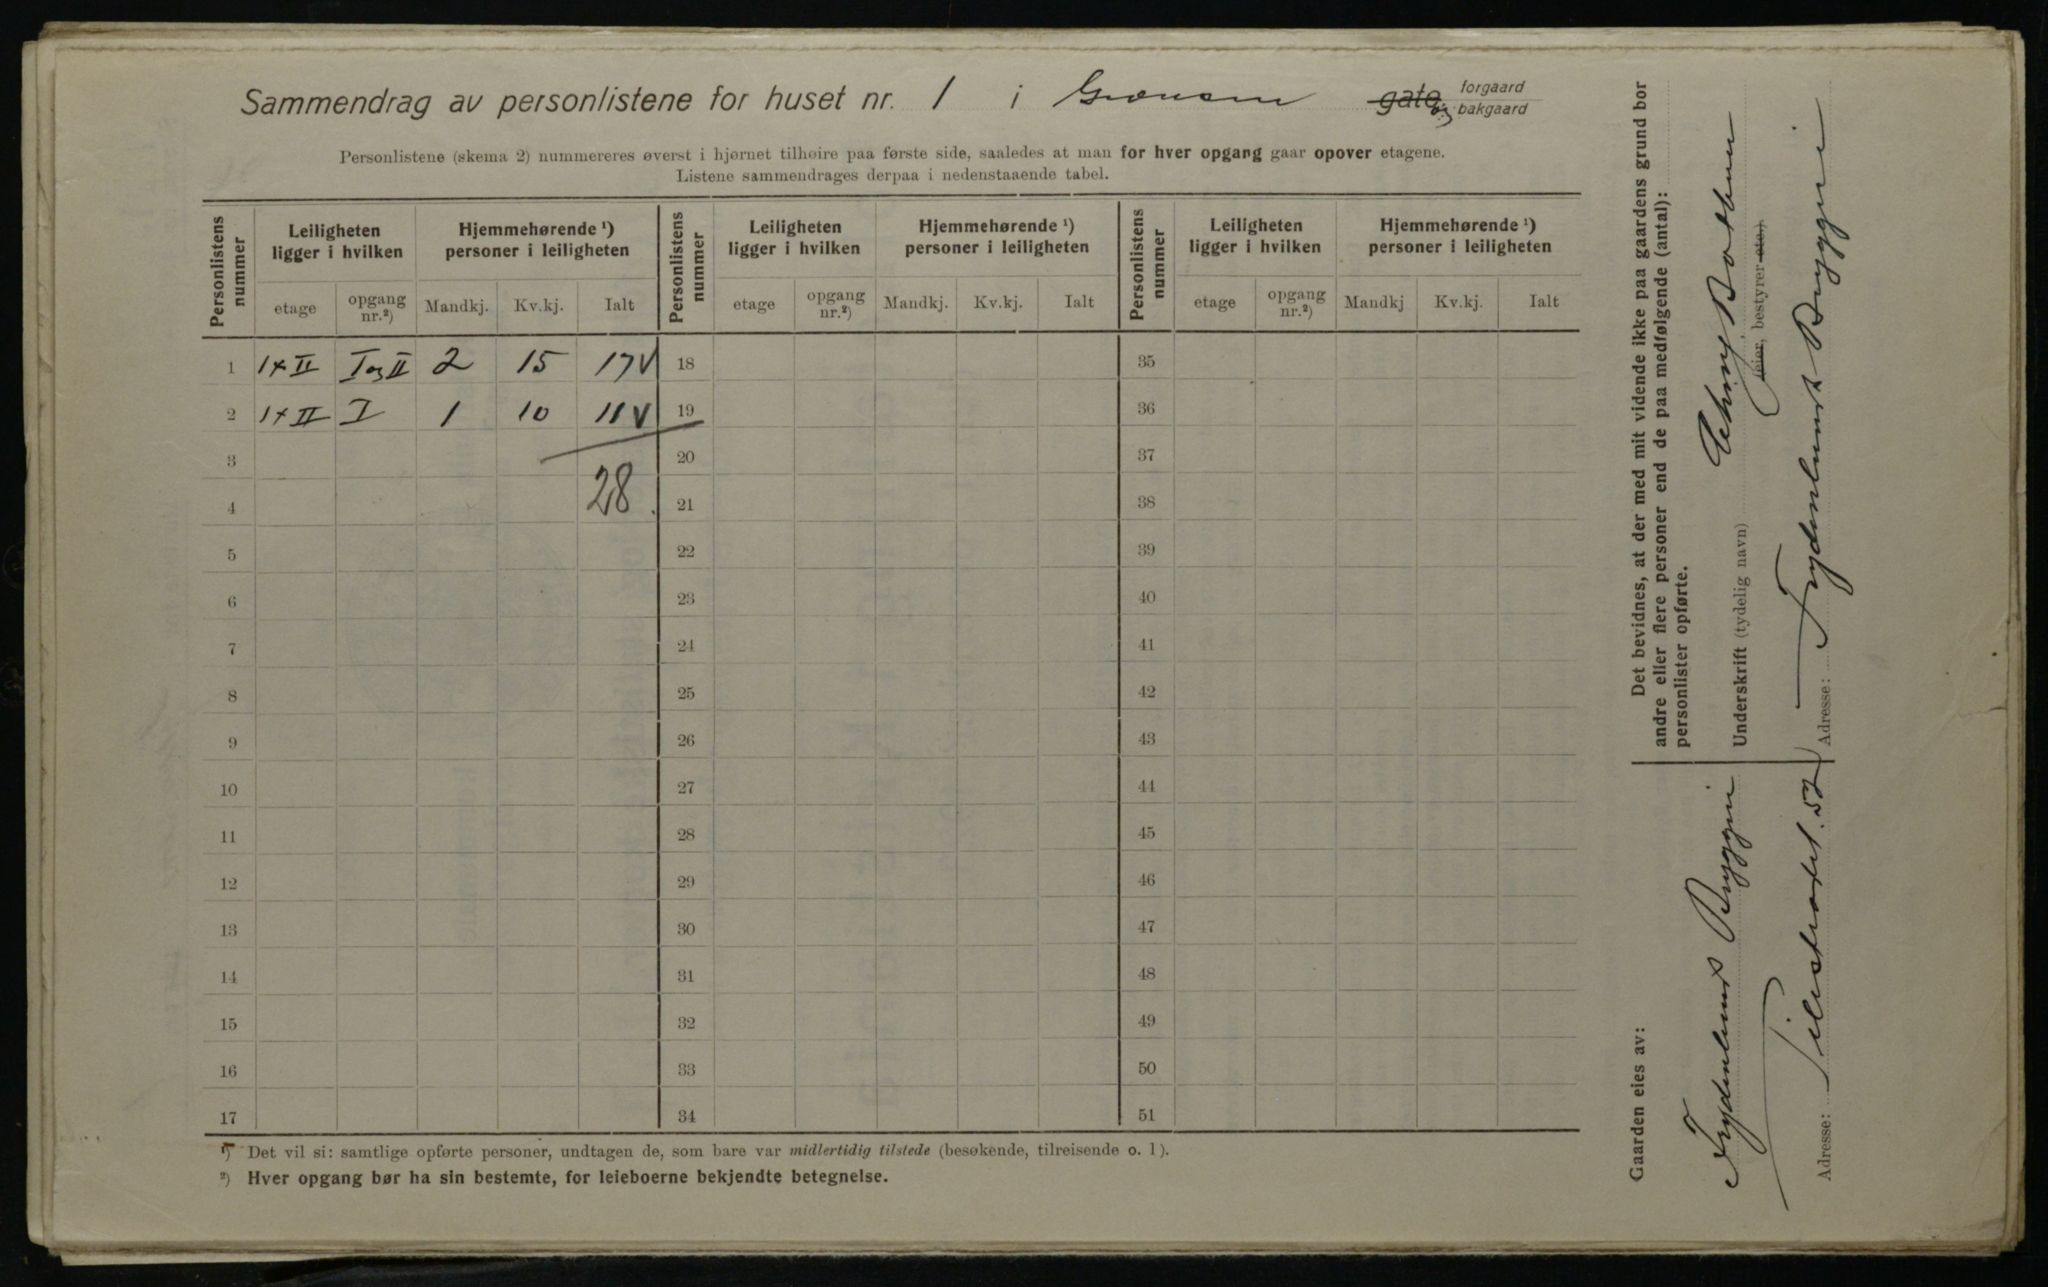 Sammendrag av personlistene for huset nr. 1 i Grænsen gate og forgaard bakgaard
Personlistene (skema 2) nummereres øverst i hjørnet tilhøire paa første side, saaledes at man for hver opgang gaar opover etagene.
Listene sammendrages derpaa i nedenstaaende tabel.
Personlistens nummer Leiligheten ligger i hvilken Hjemmehørende ¹) personer i leiligheten Personlistens nummer Leiligheten ligger i hvilken Hjemmehørende ¹) personer i leiligheten Personlistens nummer Leiligheten ligger i hvilken Hjemmehørende ¹) personer i leiligheten
etage opgang nr.²) Mandkj. Kv.kj. Ialt etage opgang nr.²) Mandkj. Kv.kj. Ialt etage opgang nr.²) Mandkj Kv.kj. Ialt
1 1+II I og II 2 15 17 V 18 35
2 1+II I 1 10 11 V 19 36
3 20 37
4 28 21 38
5 22 39
6 23 40
7 24 41
8 25 42
9 26 43
10 27 44
11 28 45
12 29 46
13 30 47
14 31 48
15 32 49
16 33 50
17 34 51
¹) Det vil si: samtlige opførte personer, undtagen de, som bare var midlertidig tilstede (besøkende, tilreisende o. l).
²) Hver opgang bør ha sin bestemte, for leieboerne bekjendte betegnelse.
Det bevidnes, at der med mit vidende ikke paa gaardens grund bor
andre eller flere personer end de paa medfølgende (antal):
personlister opførte.
Underskrift (tydelig navn)
(eier, bestyrer etc.).
Adresse: Frydenlunds Bryggeri
Gaarden eies av:
Frydenlunds Bryggeri
Adresse: Pilestrædet 52